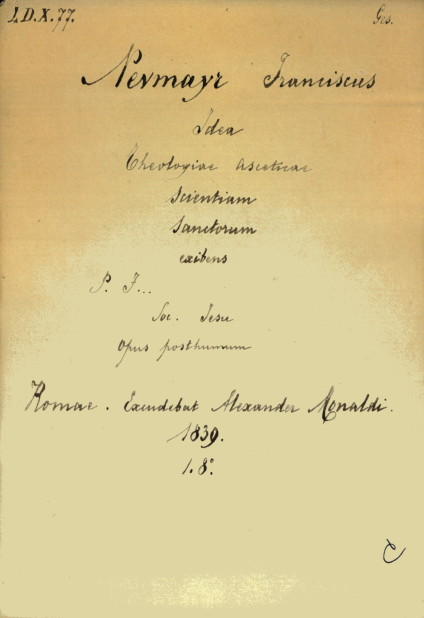 1.D.X.77. Ges.
Nevmayr Franciscus
Idea
Theologiae Asceticae
Scientiam
Sanctorum
exibens
P. F...
Soc. Jesu
Opus posthumum
Romae. Excudebat Alexander Monaldi.
1839.
1.8°.
C